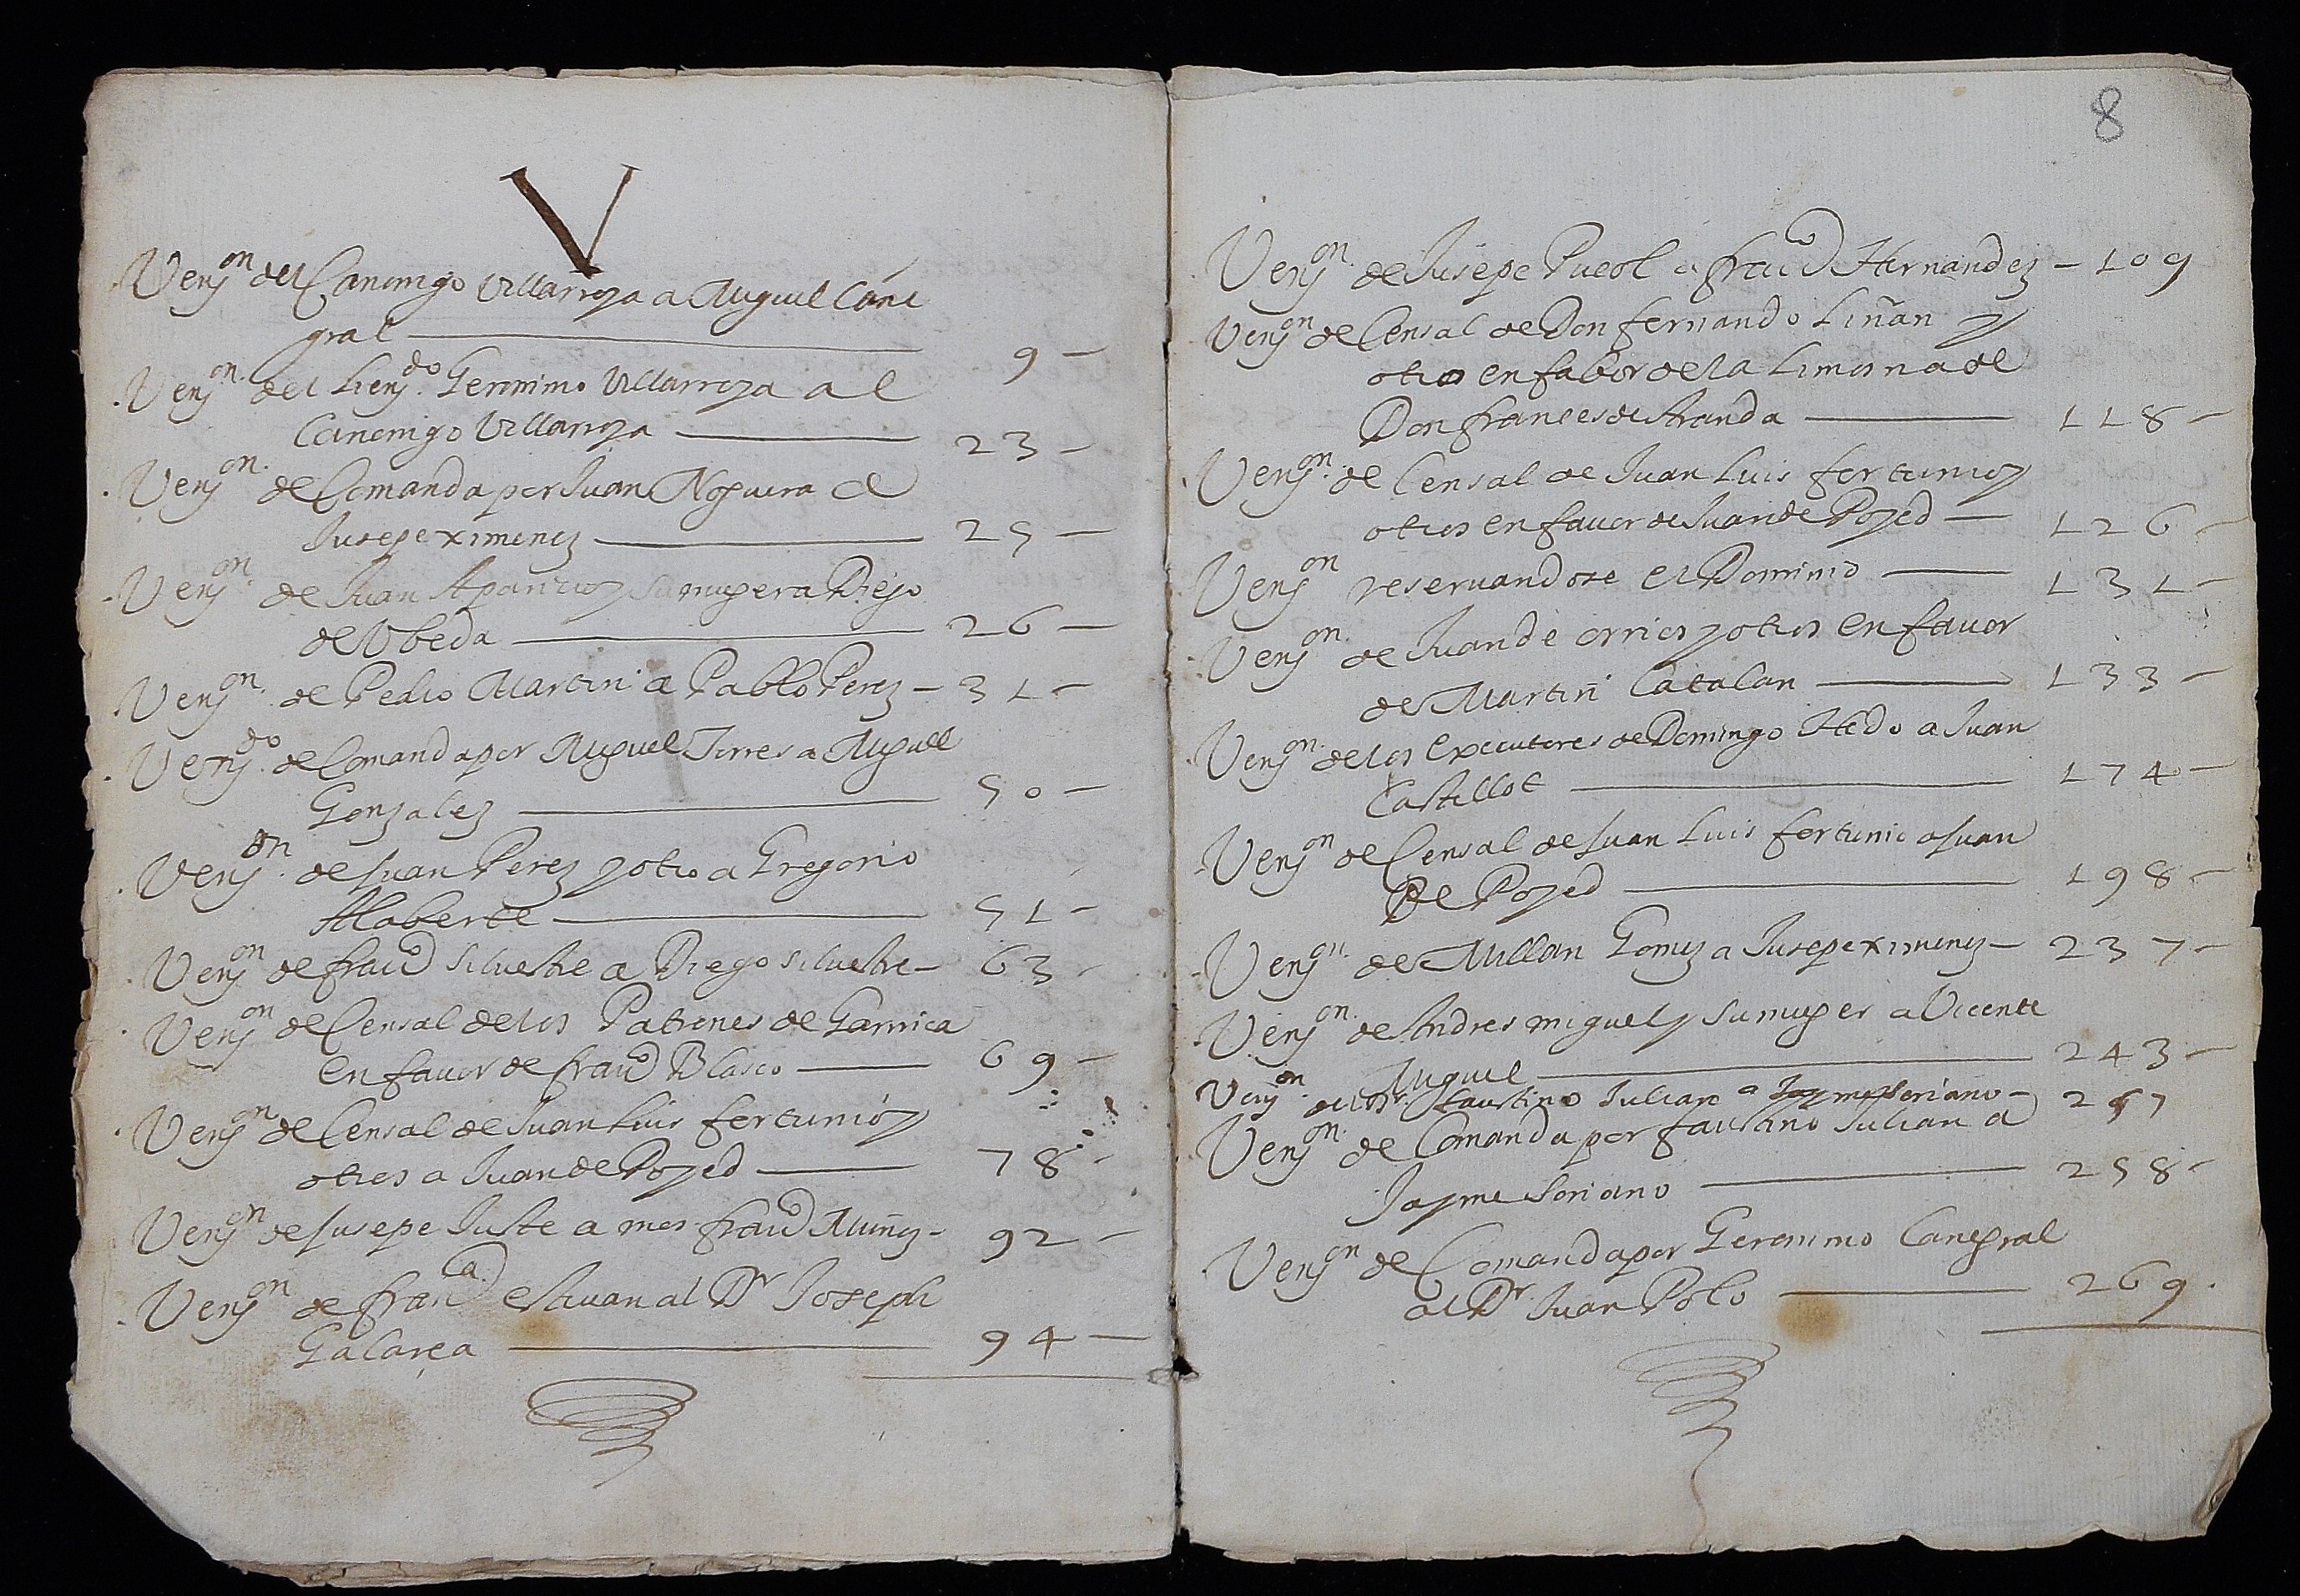 V
Venⱬon del Canonigo Villarroya a Miguel Cane
gral 9
Venⱬon del Licenⱬdo Geronimo Villarroya al
Canonigo Villarroya 23
Venⱬon de Comanda por Juan Noguera a
Jusepe ximenez 25
Venⱬon de Juan Aparicio y su muger a Diego
de Ubeda 26
Venⱬon de Pedro Martin a Pablo Perez 31
Venⱬdo de Comanda por Miguel Torres a Miguel
Gonzalez 50
Venⱬon de Juan Perez y otro a Gregorio
Alaberte 51
Venⱬon de franco Silvestre a Diego Silvestre 63
Venⱬon de Censal de los Patrones de Garnica
en favor de franco Blasco 69
Venⱬon de Censal de Juan Luis fortunio y
otros a Juan de Poyed 78
Venⱬon de Jusepe Juste a mos franco Muñoz 92
Venⱬon de franca estevan al Dr Joseph
Galarça 94
8
Venⱬon de Jusepe Pueol a franco Hernandez 109
Venⱬon de Censal de Don fernando Liñan y
otros en fabor de la Limosna de
Don frances de Aranda 118
Venⱬon de Censal de Juan Luis fortunio y
otros en favor de Juan de Poyed 126
Venⱬon reservandose el Dominio 131
Venⱬon de Juan de orrios y otros en favor
de Martin Catalan 133
Venⱬon de los executores de Domingo Hedo a Juan
Castillot 174
Venⱬon de Censal de Juan Luis fortunio a Juan
De Poyed 198
Venⱬon de Millan Gomez a Jusepe ximenez 237
Venⱬon de Andres miguel y su muger a Vicente
Miguel 243
Venⱬon de faustino Julian a Jayme Soriano 257
Venⱬon de Comanda por faustino Julian a
Jayme Soriano 258
Venⱬon de Comanda por Geronimo Canegral
al Dr. Juan Polo 269